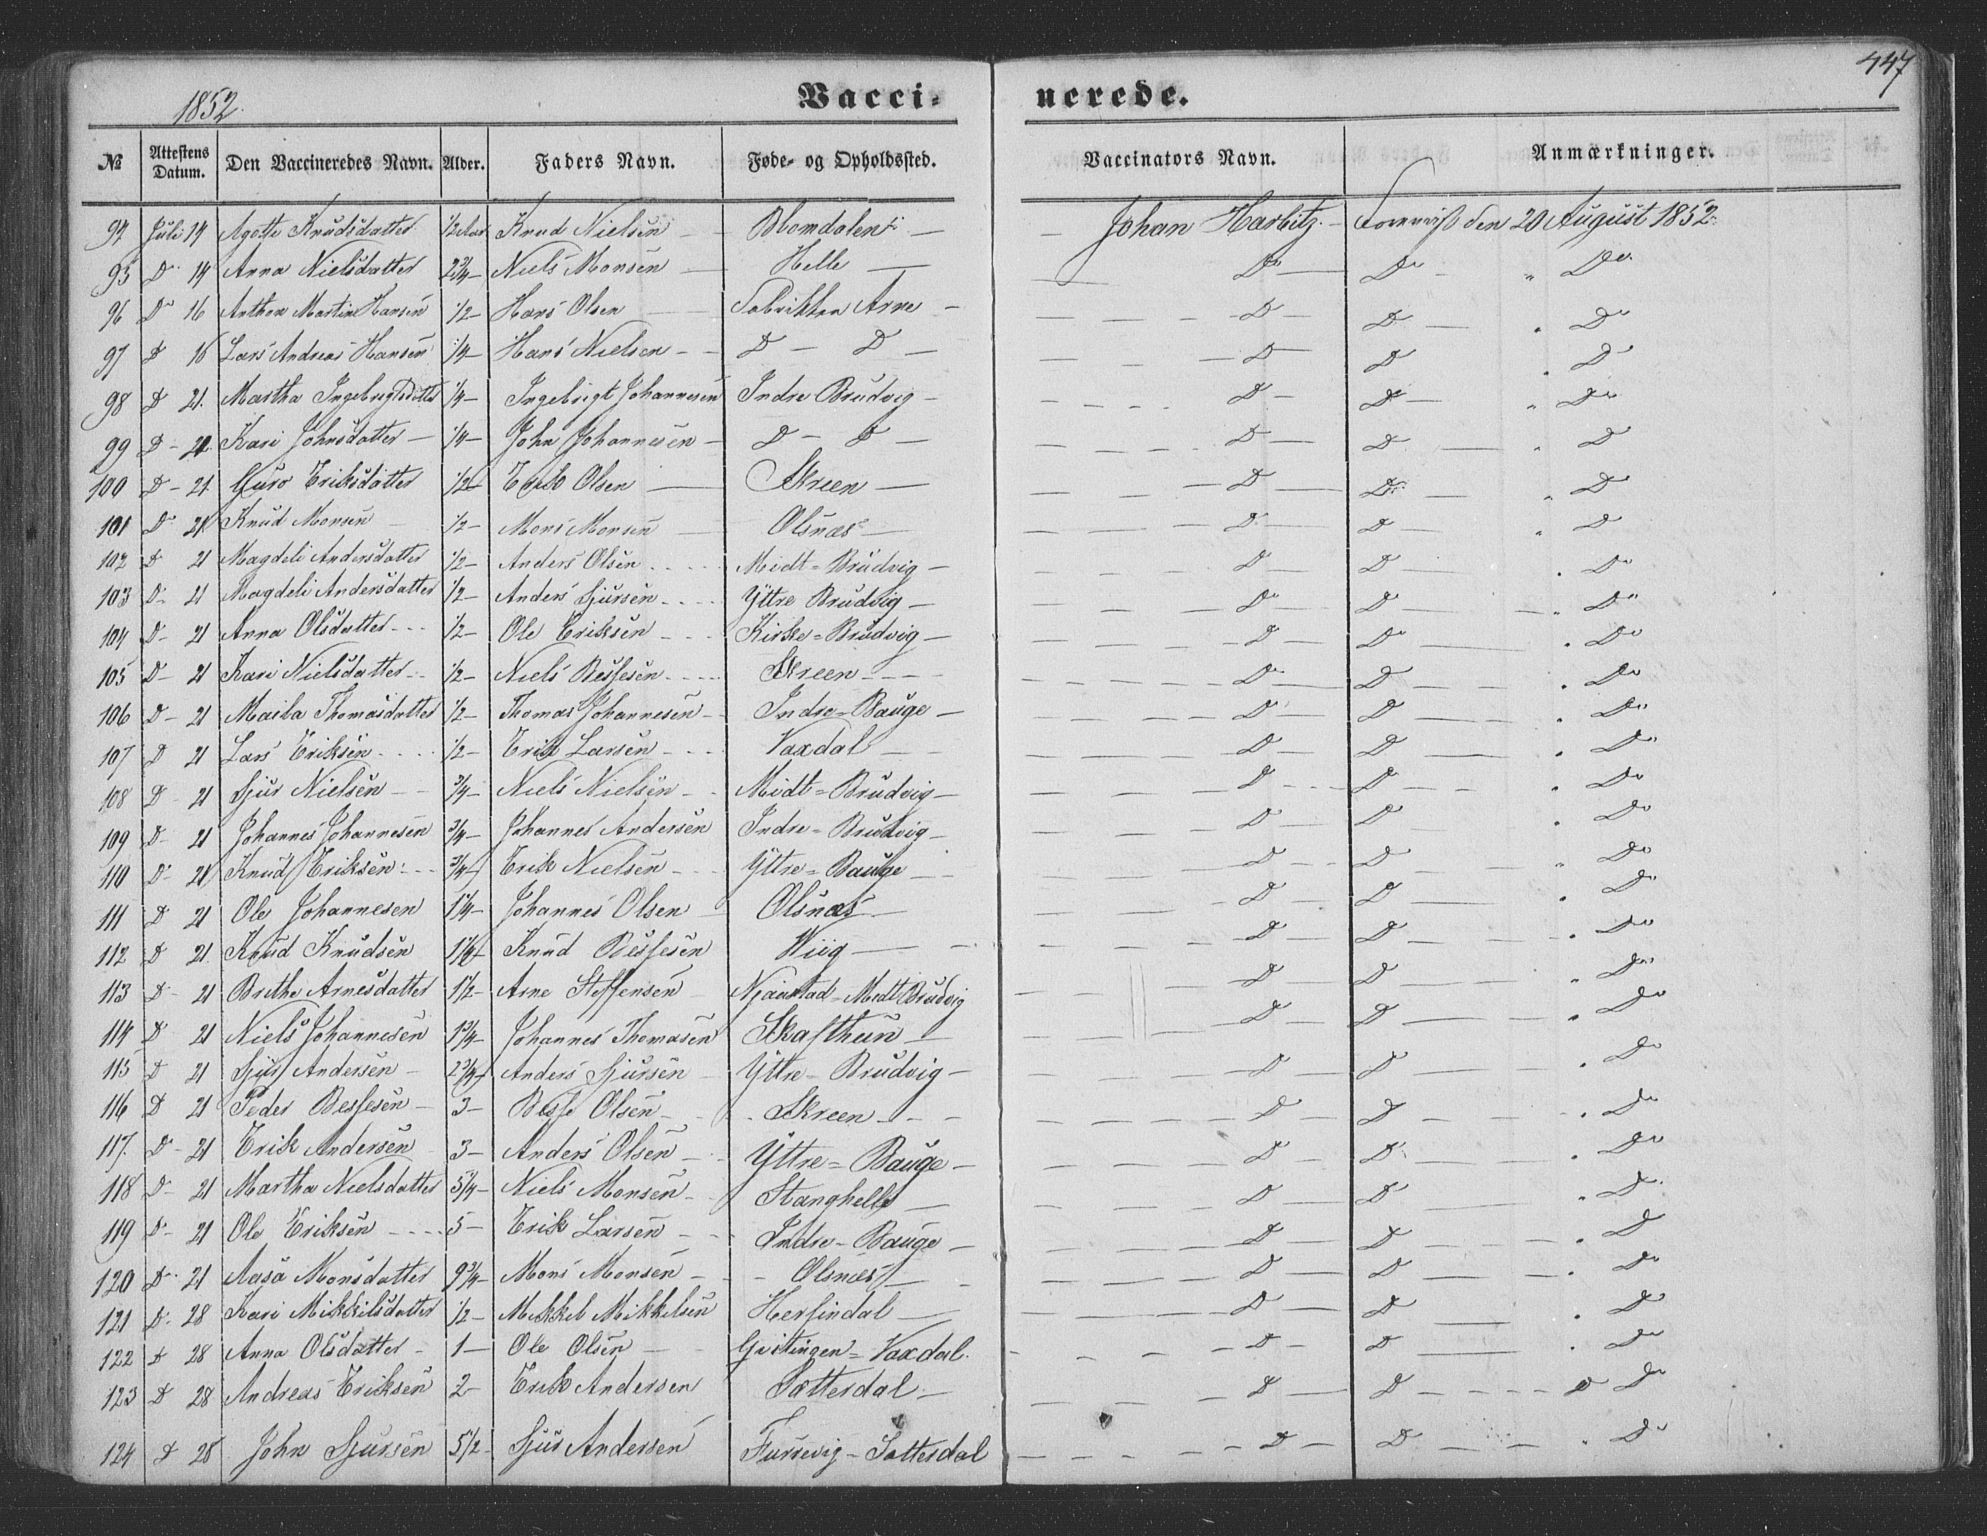 447
1852.
Vacci- nerede.
№ Attestens Datum. Den Vaccineredes Navn. Alder. Faders Navn. Føde- og Opholdssted. Vaccinators Navn. Anmærkninger.
94 Juli 14 Agethe Knudsdatter 1/2 Aar Knud Nielsen Blomdalen Johan Harbitz. Foreviist den 20 August 1852.
95 Do 14 Anna Nielsdatter 2 3/4 Niels Monsen Helle Do Do " Do
96 Do 16 Anthon Martin Hansen 1/2 Hans Olsen Fabrikken Arne D D " Do
97 D 16 Lars Andreas Hansen 1/4 Hans Nielsen D D D D " Do
98 D 21. Martha Ingebrigtsdatter 1/4 Ingebrigt Johannesen Indre Brudvig D Do " Do
99 D 21 Kari Johnsdatter 1/4 John Johannesen D D D D " D
100 D 21 Guro Eriksdatter 1/2 Erik Olsen Skreen D D " Do
101 Do 21 Knud Monsen 1/2 Mons Monsen Olsnæs D D " D
102 D 21 Magdeli Andersdatter 1/2 Anders Olsen Midt=Brudvig D D " Do
103 D 21 Magdeli Andersdatter 1/2 Anders Sjursen Yttre Brudvig Do D " Do
104 D 21 Anna Olsdatter 1/2 Ole Eriksen Kirke=Brudvig D Do " Do
105 D 21 Kari Nielsdatter 1/2 Niels Bessesen Skreen Do D " Do
106 D 21 Thomasdatter 1/2 Thomas Johannesen Indre=Bauge D D " Do
107 D 21 Lars Eriksen 1/2 Erik Larsen Vaxdal D D " Do
108 D 21 Sjur Nielsen 3/4 Niels Nielsen Midt=Brudvig D D " Do
109 D 21 Johannes Johannesen 3/4 Johannes Andersen Indre=Brudvig D D " Do
110 D 21 Knud Eriksen 3/4 Erik Nielsen Yttre=Bauge D D " Do
111 D 21 Ole Johannesen 1 1/4 Johannes Olsen Olsnæs D D " Do
112 D 21 Knud Knudsen 1 1/4 Knud Bessesen Wiig D D " Do
113 D 21 Brithe Arnesdatter 1 1/2 Arne Steffensen Njaastad=Midt Brudvig D D " Do
114 D 21 Niels Johannesen 1 3/4 Johannes Thomasen Skafthun D D " Do
115 D 21 Sjur Andersen 2 3/4 Anders Sjursen Yttre=Brudvig D D " Do
116 D 21 Peder Bessesen 3 Besse Olsen Skreen D D " Do
117. Do 21 Erik Andersen 3 Anders Olsen Yttre=Bauge D D " Do
118 D 21 Martha Nielsdatter Niels Monsen Stanghelle D D " Do
119 D 21 Ole Eriksen 5 Erik Larsen Indre=Bauge D D " D
120 D 21 Aasa Monsdatter 9 3/4 Mons Monsen Olsnæs D D " Do
121 D 28 Kari Mikkelsdatter 1/2 Mikkel Mikkelsen Herfindal D D " Do
122 D 28 Anna Olsdatter 1 Ole Olsen Gistingen=Vaxdal. D D " Do
123 D 28 Andreas Eriksen 2 Erik Andersen Sætterdal D D Do
124 D 28 John Sjursen 5 1/2 Sjur Andersen Fursevig=Sætterdal D D " Do